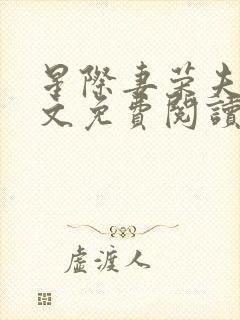 星際妻荣夫
文免費閱讀
虛渡人